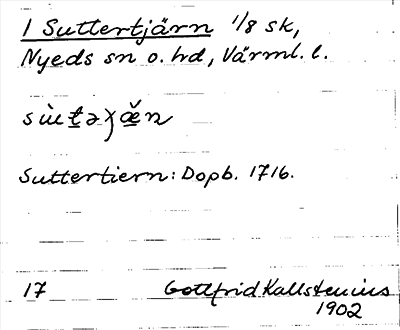 1 Suttertjärn 1/8 sk,
Nyeds sn o. hd, Värml. l.
Suttertiern: Dopb. 1716.
17 Gottfrid Kallstenius
1902